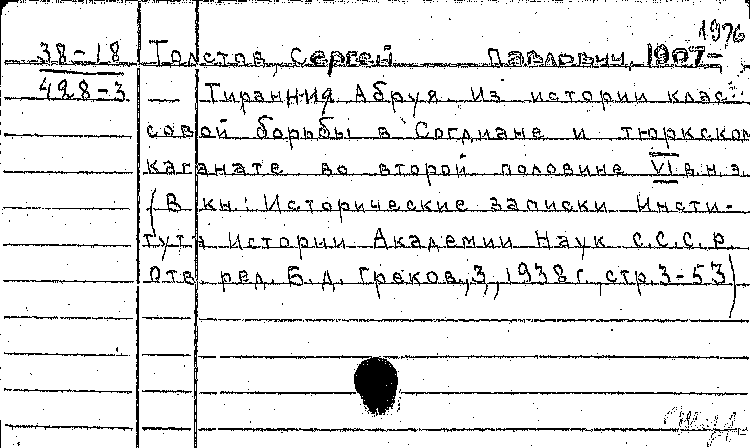 1976
38-18 Толстов, Сергей Павлович, 1907-
428-3 — Тиранния Абруя. Из истории клас-
совой борьбы в Согдиане и тюркском
каганате во второй половине VI в.н.э.
(В кн: Исторические записки Инсти-
тута Истории Академии Наук С.С.С.Р.
Отв. ред. Б.Д. Греков, 3, 1938 г. стр. 3-53)